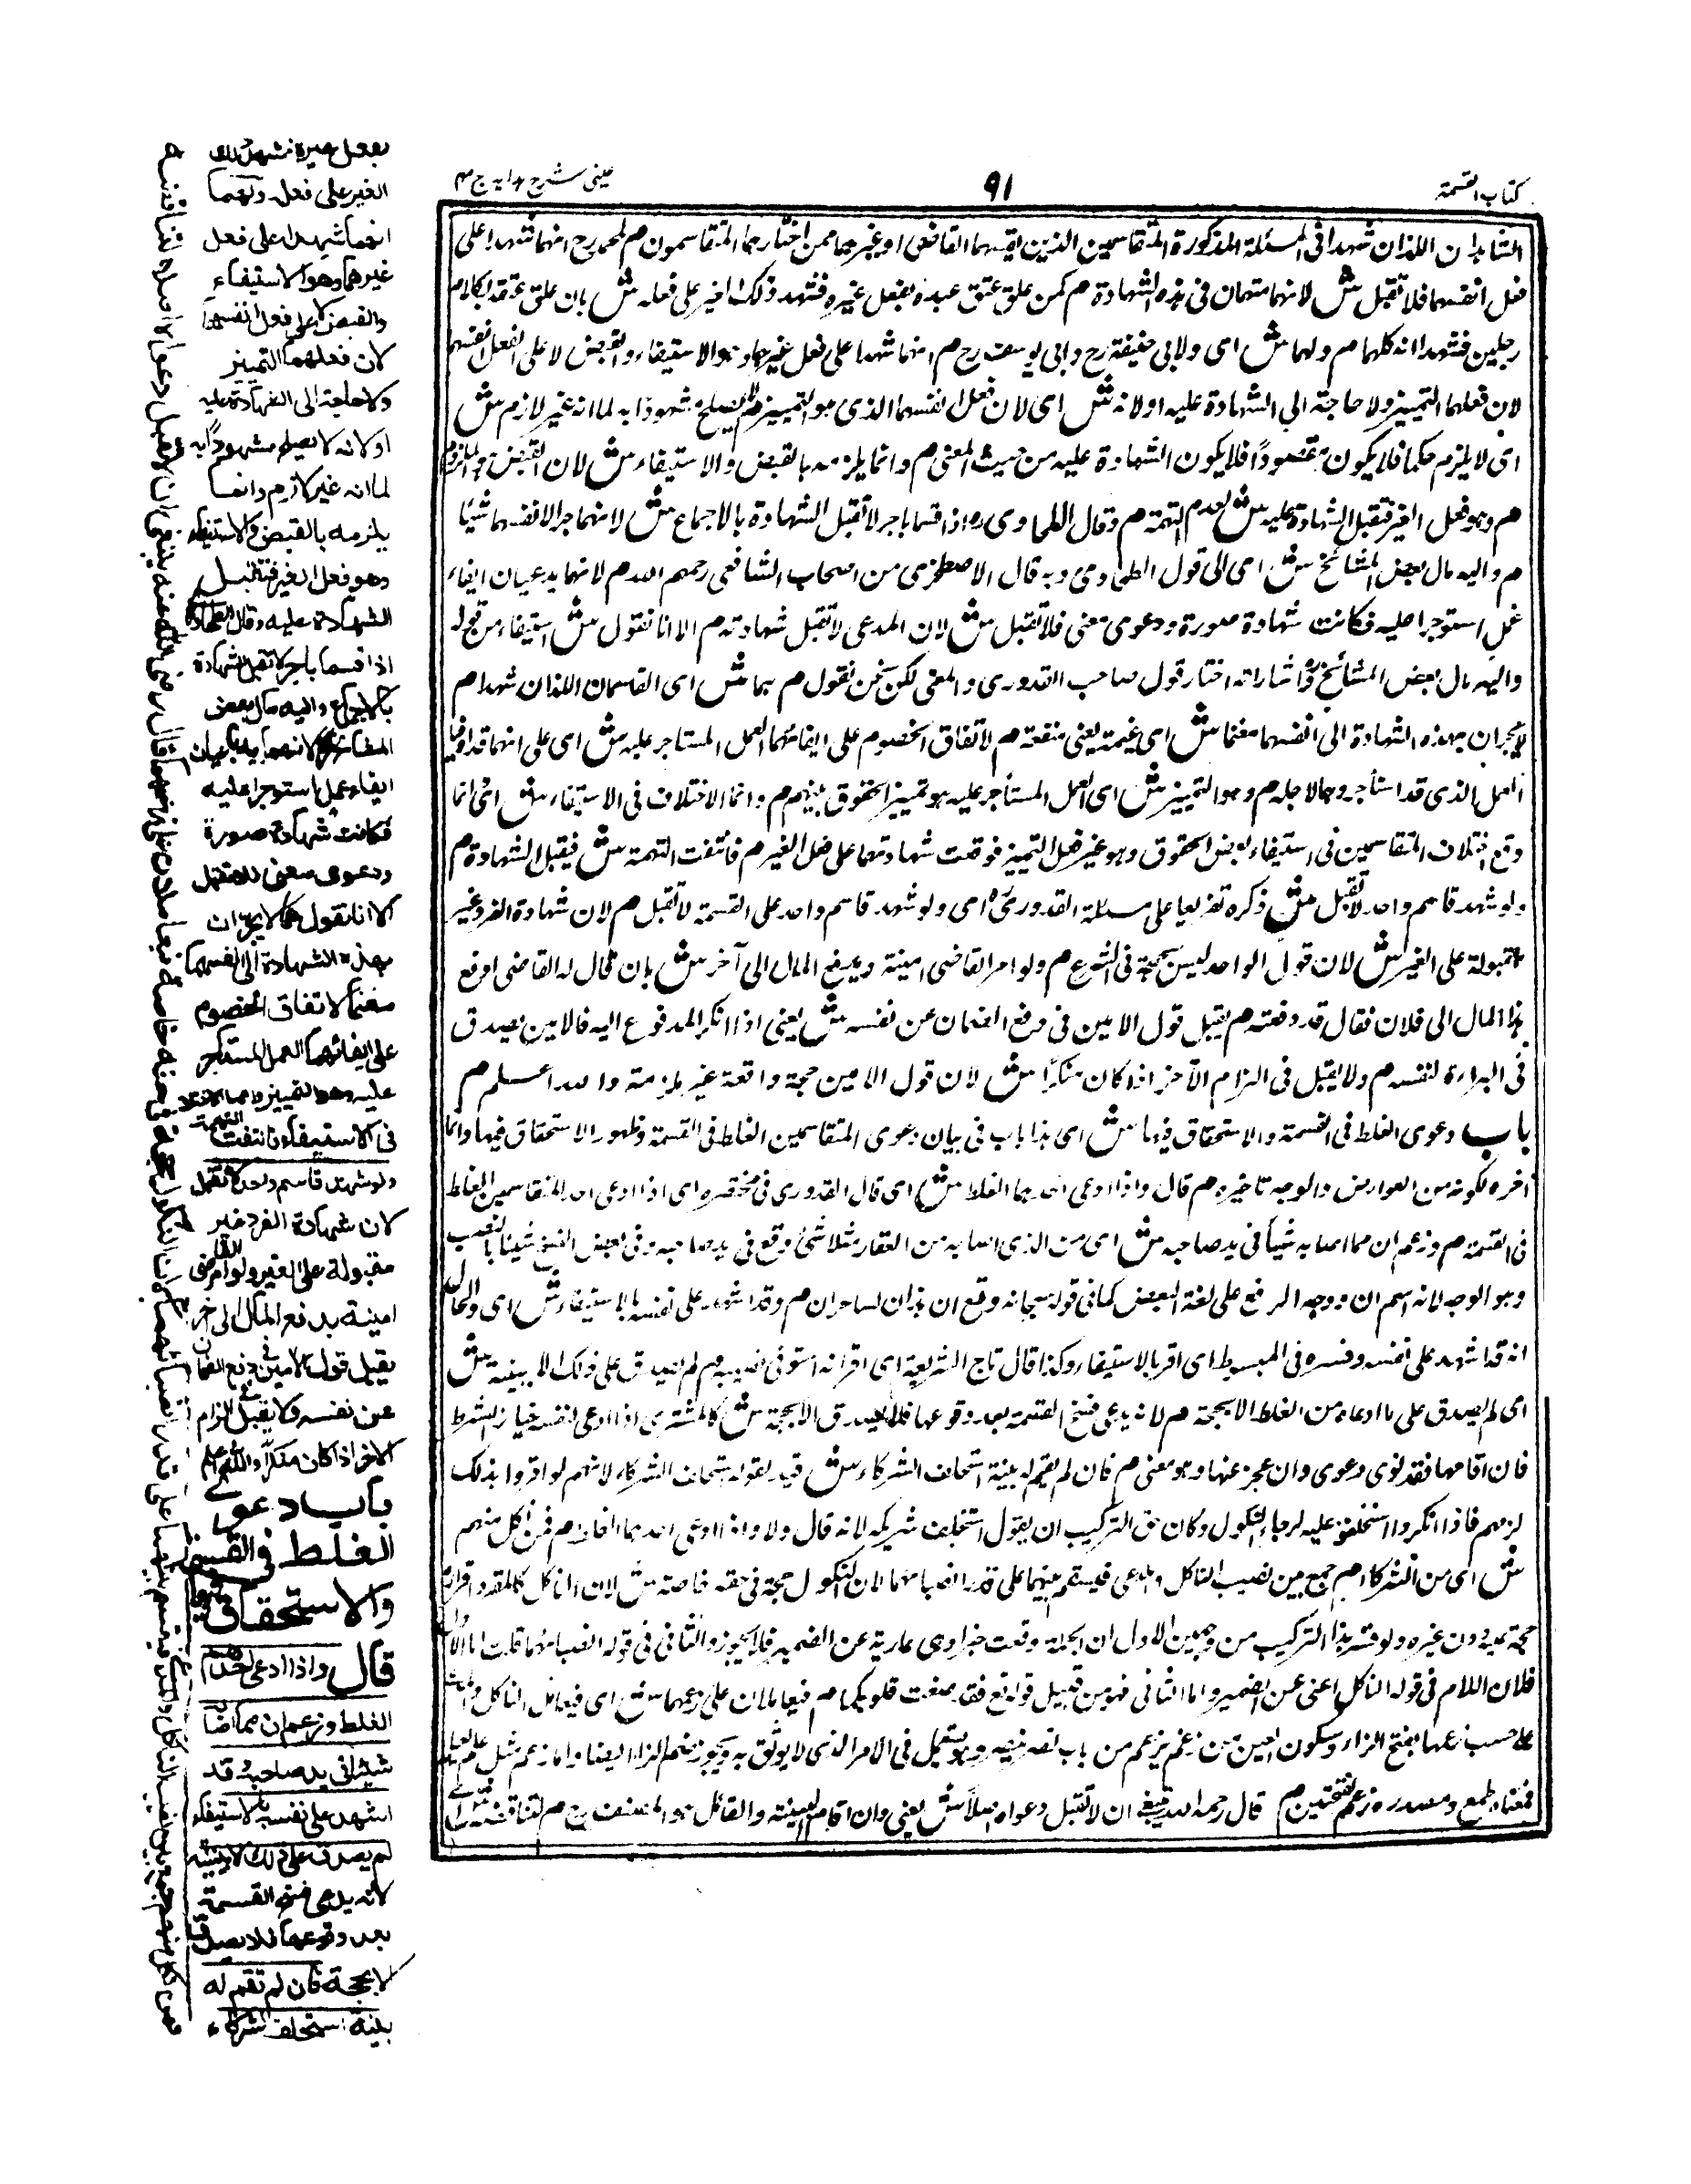 كتاب القسمة
٩١
عينى شرح هدايه ج ٣
الشاهدان اللذان شهدا فى المسئلة المذكورة المتقاسمين الذين اقسهما القاضى او غيرهما ممن اختارهما المتقاسمون م لمحمد رح انهما شهدا على
فعل انفسهما فلا تقبل ش لانهما متهمان فى هذه الشهادة م كمن علق عتق عبده بفعل غيره فشهد ذلك الغير على فعله ش بان علق عتقه بكلام
رجلين فشهدا انه كلمهما م ولهما ش اى ولابى حنيفة رح وابى يوسف رح م انهما شهدا على فعل غيرهما وهو الاستيفاء والقبض لا على الفعل انفسهما
لان فعلهما التمييز ولا حاجة الى الشهادة عليه او لانه ش اى لان فعل انفسهما الذى هو التمييز م لا يصلح شهودا به لما انه غير لازم ش
اى لا يلزم حكما فلا يكون مقصودًا فلا يكون الشهادة عليه من حيث المعنى م وانما يلزمه بالقبض والاستيفاء ش لان القبض هو الملزوم
م وهو فعل الغير فتقبل الشهادة عليه ش لعدم التهمة م وقال الطحاوى رح اذا قسما باجر لا تقبل الشهادة بالاجماع ش لانهما جرا لانفسهما شيئا
م واليه مال بعض المشائخ ش اى الى قول الطحاوى وبه قال الاصطخرى من اصحاب الشافعى رحمهم الله م لانهما يدعيان ايفاء
عمل استوجرا عليه فكانت شهادة صورة ودعوى معنى فلا تقبل ش لان المدعى لا تقبل شهادته م الا انا نقول ش استيفاء من قوله
واليه مال بعض المشائخ واشار انه اختار قول صاحب القدورى والمعنى لكن نحن نقول م هما ش اى القاسمان اللذان شهدا م
لا يجران بهذه الشهادة الى انفسهما مغنما ش اى غنيمة يعنى منفعة م لاتفاق الخصوم على ايفائهما العمل المستاجر عليه ش اى على انهما قد اوفيا
العمل الذى قد استأجروهما لاجله م وهو التمييز ش اى العمل المستأجر عليه هو تمييز الحقوق بينهم م وانما الاختلاف فى الاستيفاء ش اى انما
وقع اختلاف المتقاسمين فى استيفاء بعض الحقوق وهو غير فعل التمييز فوقعت شهادتهما على فعل الغير م فانتفت التهمة ش فيقبل الشهادة م
ولو شهد قاسم واحد لا تقبل ش ذكره تفريعا على مسئلة القدورى رح اى ولو شهد قاسم واحد على القسمة لا تقبل م لان شهادة الفرد غير
مقبولة على الغير ش لان قول الواحد ليس بحجة فى الشرع م ولو امر القاضى امينه ويدفع المال الى آخر ش بان قال له القاضى ادفع
هذا المال الى فلان فقال قد دفعته م يقبل قول الامين فى دفع الضمان عن نفسه ش يعنى اذا انكر المدفوع اليه فالامين يصدق
فى البراءة لنفسه م ولا يقبل فى الزام الآخر اذا كان منكرًا ش لان قول الامين حجة دافعة غير ملزمة والله اعلم م
باب دعوى الغلط فى القسمة والاستحقاق فيها ش اى هذا باب فى بيان دعوى المتقاسمين الغلط فى القسمة وظهور الاستحقاق فيها وانما
اخره لكونه من العوارض والوجه تاخيره م قال واذا ادعى احدهما الغلط ش اى قال القدورى فى مختصره اى اذا ادعى احد المتقاسمين الغلط
فى القسمة م وزعم ان مما اصابه شيأ فى يد صاحبه ش اى من الذى اصابه من العقار مثلا شئ وقع فى يد صاحبه وفى بعض النسخ شيئا بالنصب
وهو الوجه لانه اسم ان ووجه الرفع على لغة البعض كما فى قوله سبحانه وقع ان هذان لساحران م وقد اشهد على نفسه بالاستيفاء ش اى والحال
انه قد اشهد على نفسه وفسره فى المبسوط اى اقر بالاستيفاء وكذا قال تاج الشريعة اى اقر انه استوفى نصيبه م لم يصدق على ذلك الا ببينة ش
اى لم يصدق على ما ادعاه من الغلط الا بحجة م لانه يدعى فسخ القسمة بعد وقوعها فلا يصدق الا بحجة ش كالمشترى اذا ادعى لنفسه خيار الشرط
فان اقامها فقد نوى دعوى وان عجز عنها وهو معنى م فان لم تقم له بينة استحلف الشركاء ش قيد بقوله استحلف الشركاء لانهم لو اقروا بذلك
لزمهم فاذا انكروا استحلفوا عليه لرجاء النكول وكان حق التركيب ان يقول استحلف شريكه لانه قال اولا واذا ادعى احدهما الغلط م فمن نكل منهم
ش اى من الشركاء م جمع بين نصيب الناكل والمدعى فيقسم بينهما على قدر انصبائهما لان النكول حجة فى حقه خاصة ش لان الناكل كالمقر واقراره
حجة عليه دون غيره ولو فسر هذا التركيب من وجهين الاول ان الجملة وقعت خبرا وهى عارية عن الضمير فلا يجوز والثانى فى قوله انصبائهما قلت اما الاول
فلان اللام فى قوله الناكل اغنى عن الضمير واما الثانى فهو من قبيل قوله تع فقد صغت قلوبكما م فيعاملان على زعمهما ش اى فيعامل الناكل والمدعى
على حسب زعمهما بفتح الزاء وسكون العين من زعم يزعم من باب نصر ينصر وهو يستعمل فى الامر الذى لا يوثق به ويجوز بضم الزاء ايضا واما زعم مثل علم يعلم
فمعناه طمع ومصدره زعم بفتحتين م قال رحمه الله ينبغى ان لا تقبل دعواه اصلا ش يعنى وان اقام البينة والقائل هو المصنف رح م لتناقضه
بفعل غيره فشهد ذلك
الغير على فعله ولهما
انهما شهدا على فعل
غيرهما وهو الاستيفاء
والقبض لا على فعل انفسهما
لان فعلهما التمييز
ولا حاجة الى الشهادة عليه
او لانه لا يصلح مشهودًا به
لما انه غير لازم وانما
يلزمه بالقبض والاستيفاء
وهو فعل الغير فتقبل
الشهادة عليه وقال الطحاوى
اذا قسما باجر لا تقبل الشهادة
بالاجماع واليه مال بعض
المشائخ لانهما يدعيان
ايفاء عمل استوجرا عليه
فكانت شهادة صورة
ودعوى معنى فلا تقبل
الا انا نقول هما لا يجران
بهذه الشهادة الى انفسهما
مغنما لاتفاق الخصوم
على ايفائهما العمل المستاجر
عليه وهو التمييز وانما الاختلاف
فى الاستيفاء فانتفت التهمة
ولو شهد قاسم واحد لا تقبل
لان شهادة الفرد غير
مقبولة على الغير ولو امر القاضى
امينه بدفع المال الى آخر
يقبل قول الامين فى دفع الضمان
عن نفسه ولا يقبل فى الزام
الآخر اذا كان منكرًا والله اعلم
باب دعوى
الغلط فى القسمة
والاستحقاق فيها
قال واذا ادعى احدهم
الغلط وزعم ان مما اصابه
شيئا فى يد صاحبه وقد
اشهد على نفسه بالاستيفاء
لم يصدق على ذلك الا ببينة
لانه يدعى فسخ القسمة
بعد وقوعها فلا يصدق
الا بحجة فان لم تقم له
بينة استحلف الشركاء
فمن نكل منهم جمع بين نصيب الناكل والمدعى فيقسم بينهما على قدر انصبائهما لان النكول حجة فى حقه خاصة فيعاملان على زعمهما قال رضى الله عنه ينبغى ان لا تقبل دعواه اصلا لتناقضه